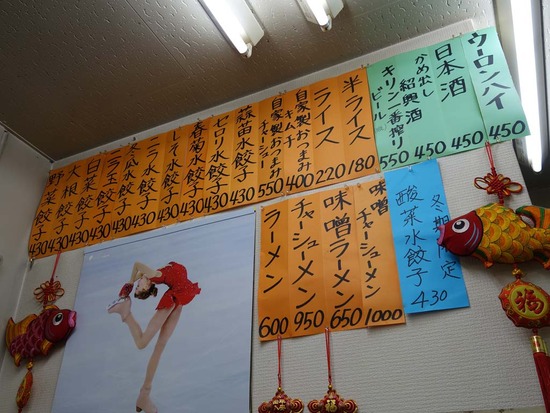 ウーロンハイ 450
日本酒 450
かめ出し
紹興酒 450
キリン一番搾り
ビール 550
半ライス 180
ライス 220
自家製おつまみ
キムチ 400
自家製おつまみ
チャーシュー 550
蒜苗水餃子 430
セロリ水餃子 430
春菊水餃子 430
しそ水餃子 430
ニラ水餃子 430
冬瓜水餃子 430
ニラ玉餃子 430
白菜餃子 430
大根餃子 430
野菜餃子 430
冬期限定
酸菜水餃子 430
味噌
チャーシューメン 1000
味噌ラーメン 650
チャーシューメン 950
ラーメン 600
福